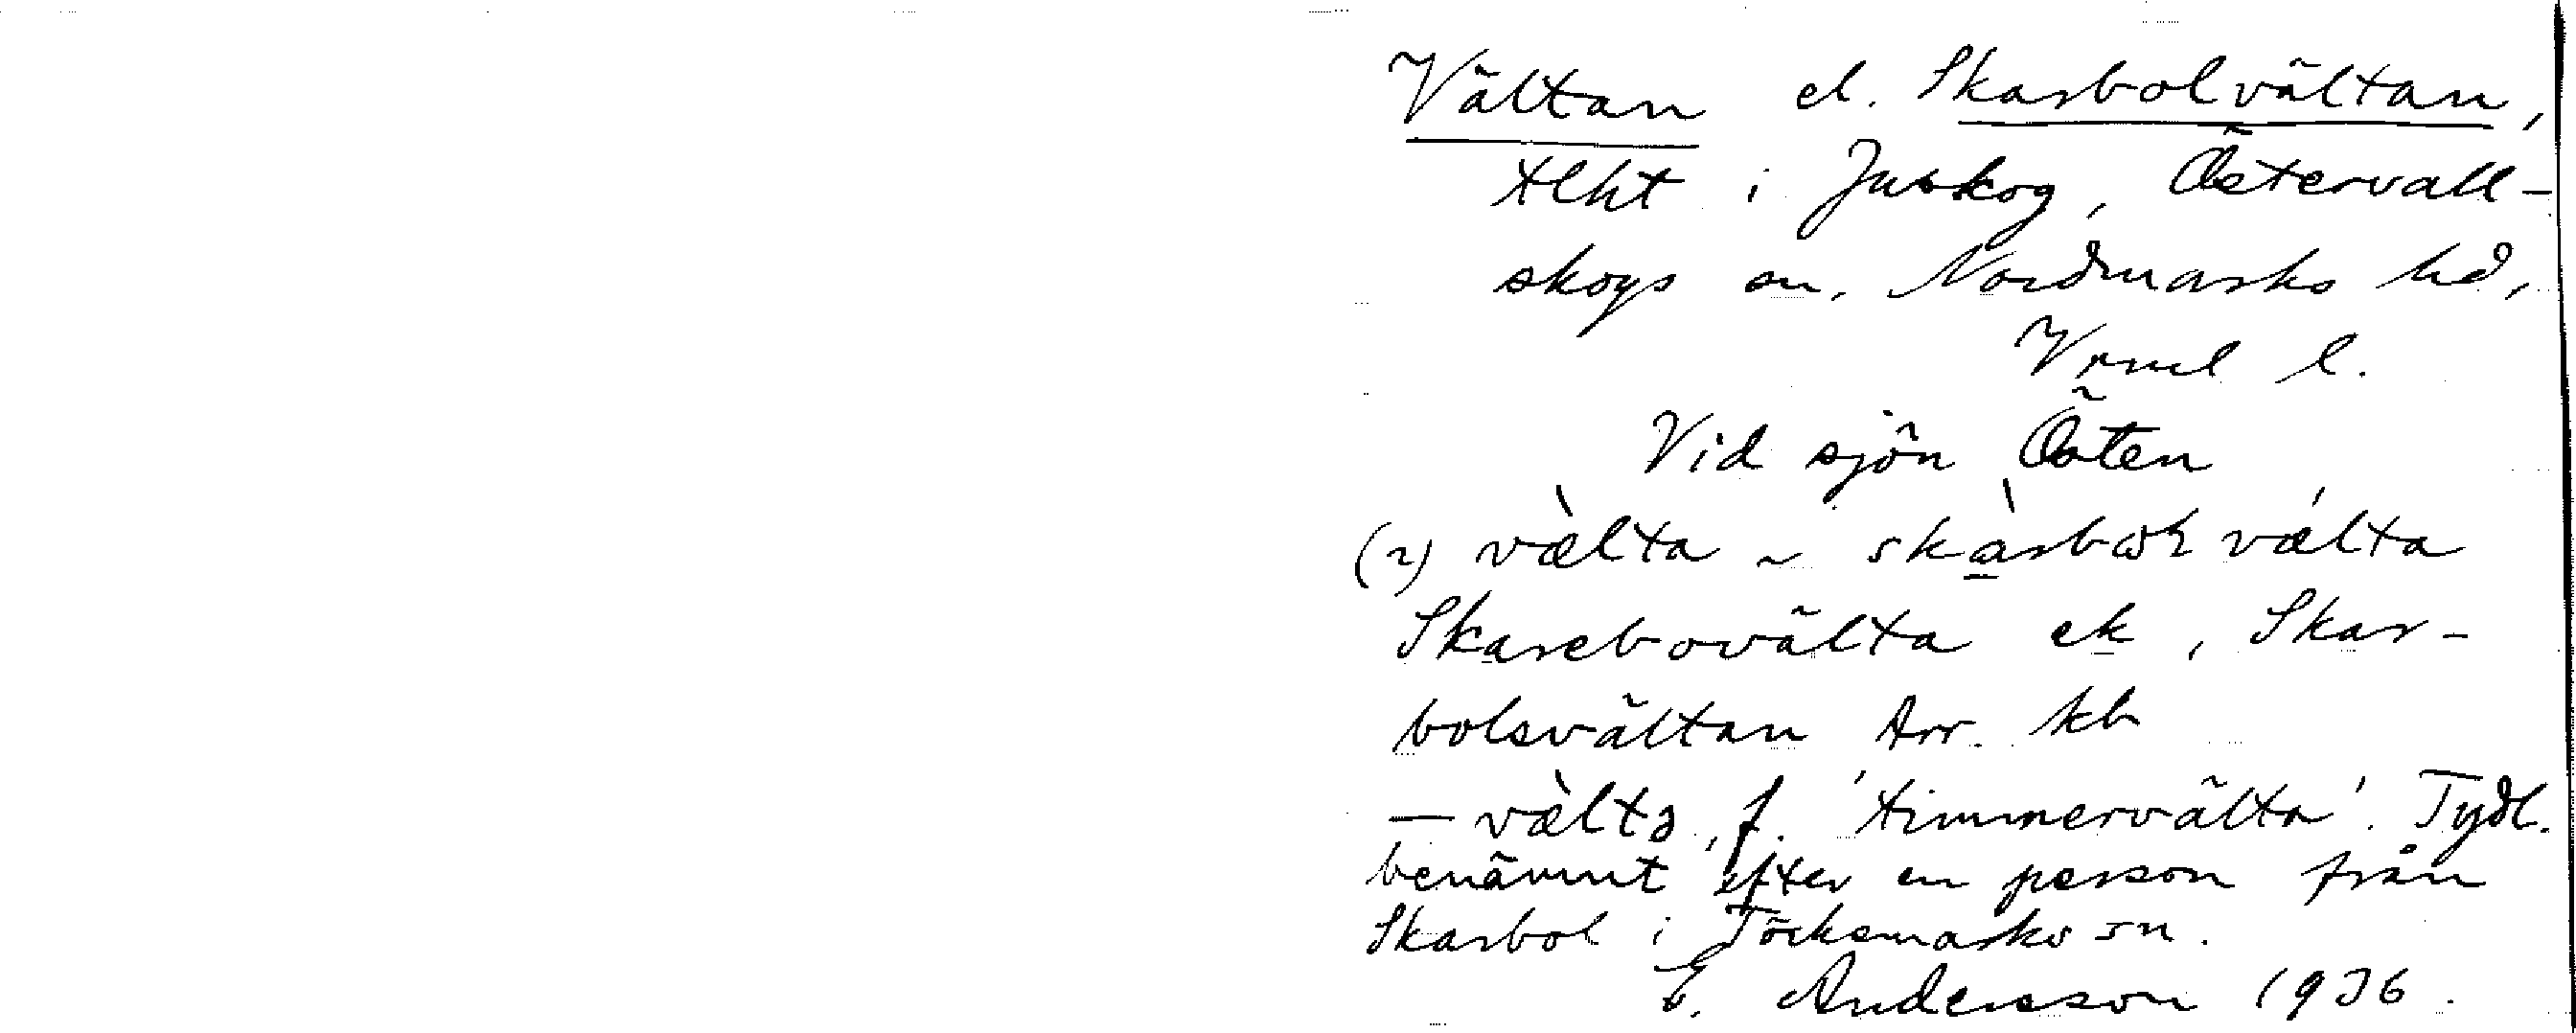 Vältan el. Skarbolvältan,
tlht i Juskog, Östervall-
skogs sn, Nordmarks hd,
Vrml l.
Vid sjön Östen
(2) vælta ~ skarbol vælta
Skarebovälta ek, Skar-
bolsvältan Arr. kb
— væltə, f. 'timmervälta'. Tydl.
benämnt efter en person från
Skarbol i Töcksmarks sn.
E. Andersson 1936.